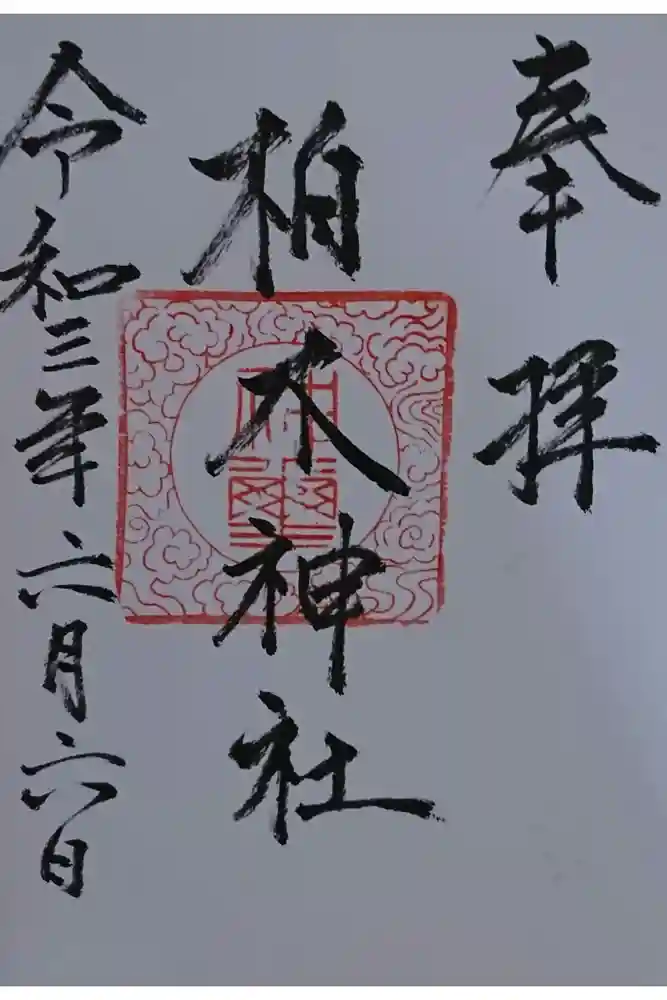 奉拝
柏木神社
令和三年六月六日